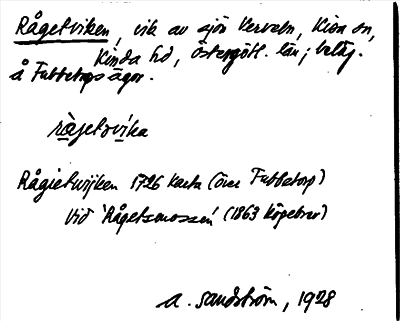 Rågetviken, vik av sjön Verveln, Kisa sn,
Kinda hd, Östergötl. län; beläg.
å Fubbetorps ägor.
ràjetsvika
Rågietwijken 1726 Karta (över Fubbetorp)
vid 'Rågetsmossen' (1863 Köpebrev)
A. Sandström, 1928